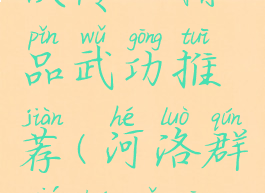 pǐn wǔ gōng tuī
品武功推
jiàn hé luò qún
荐(河洛群